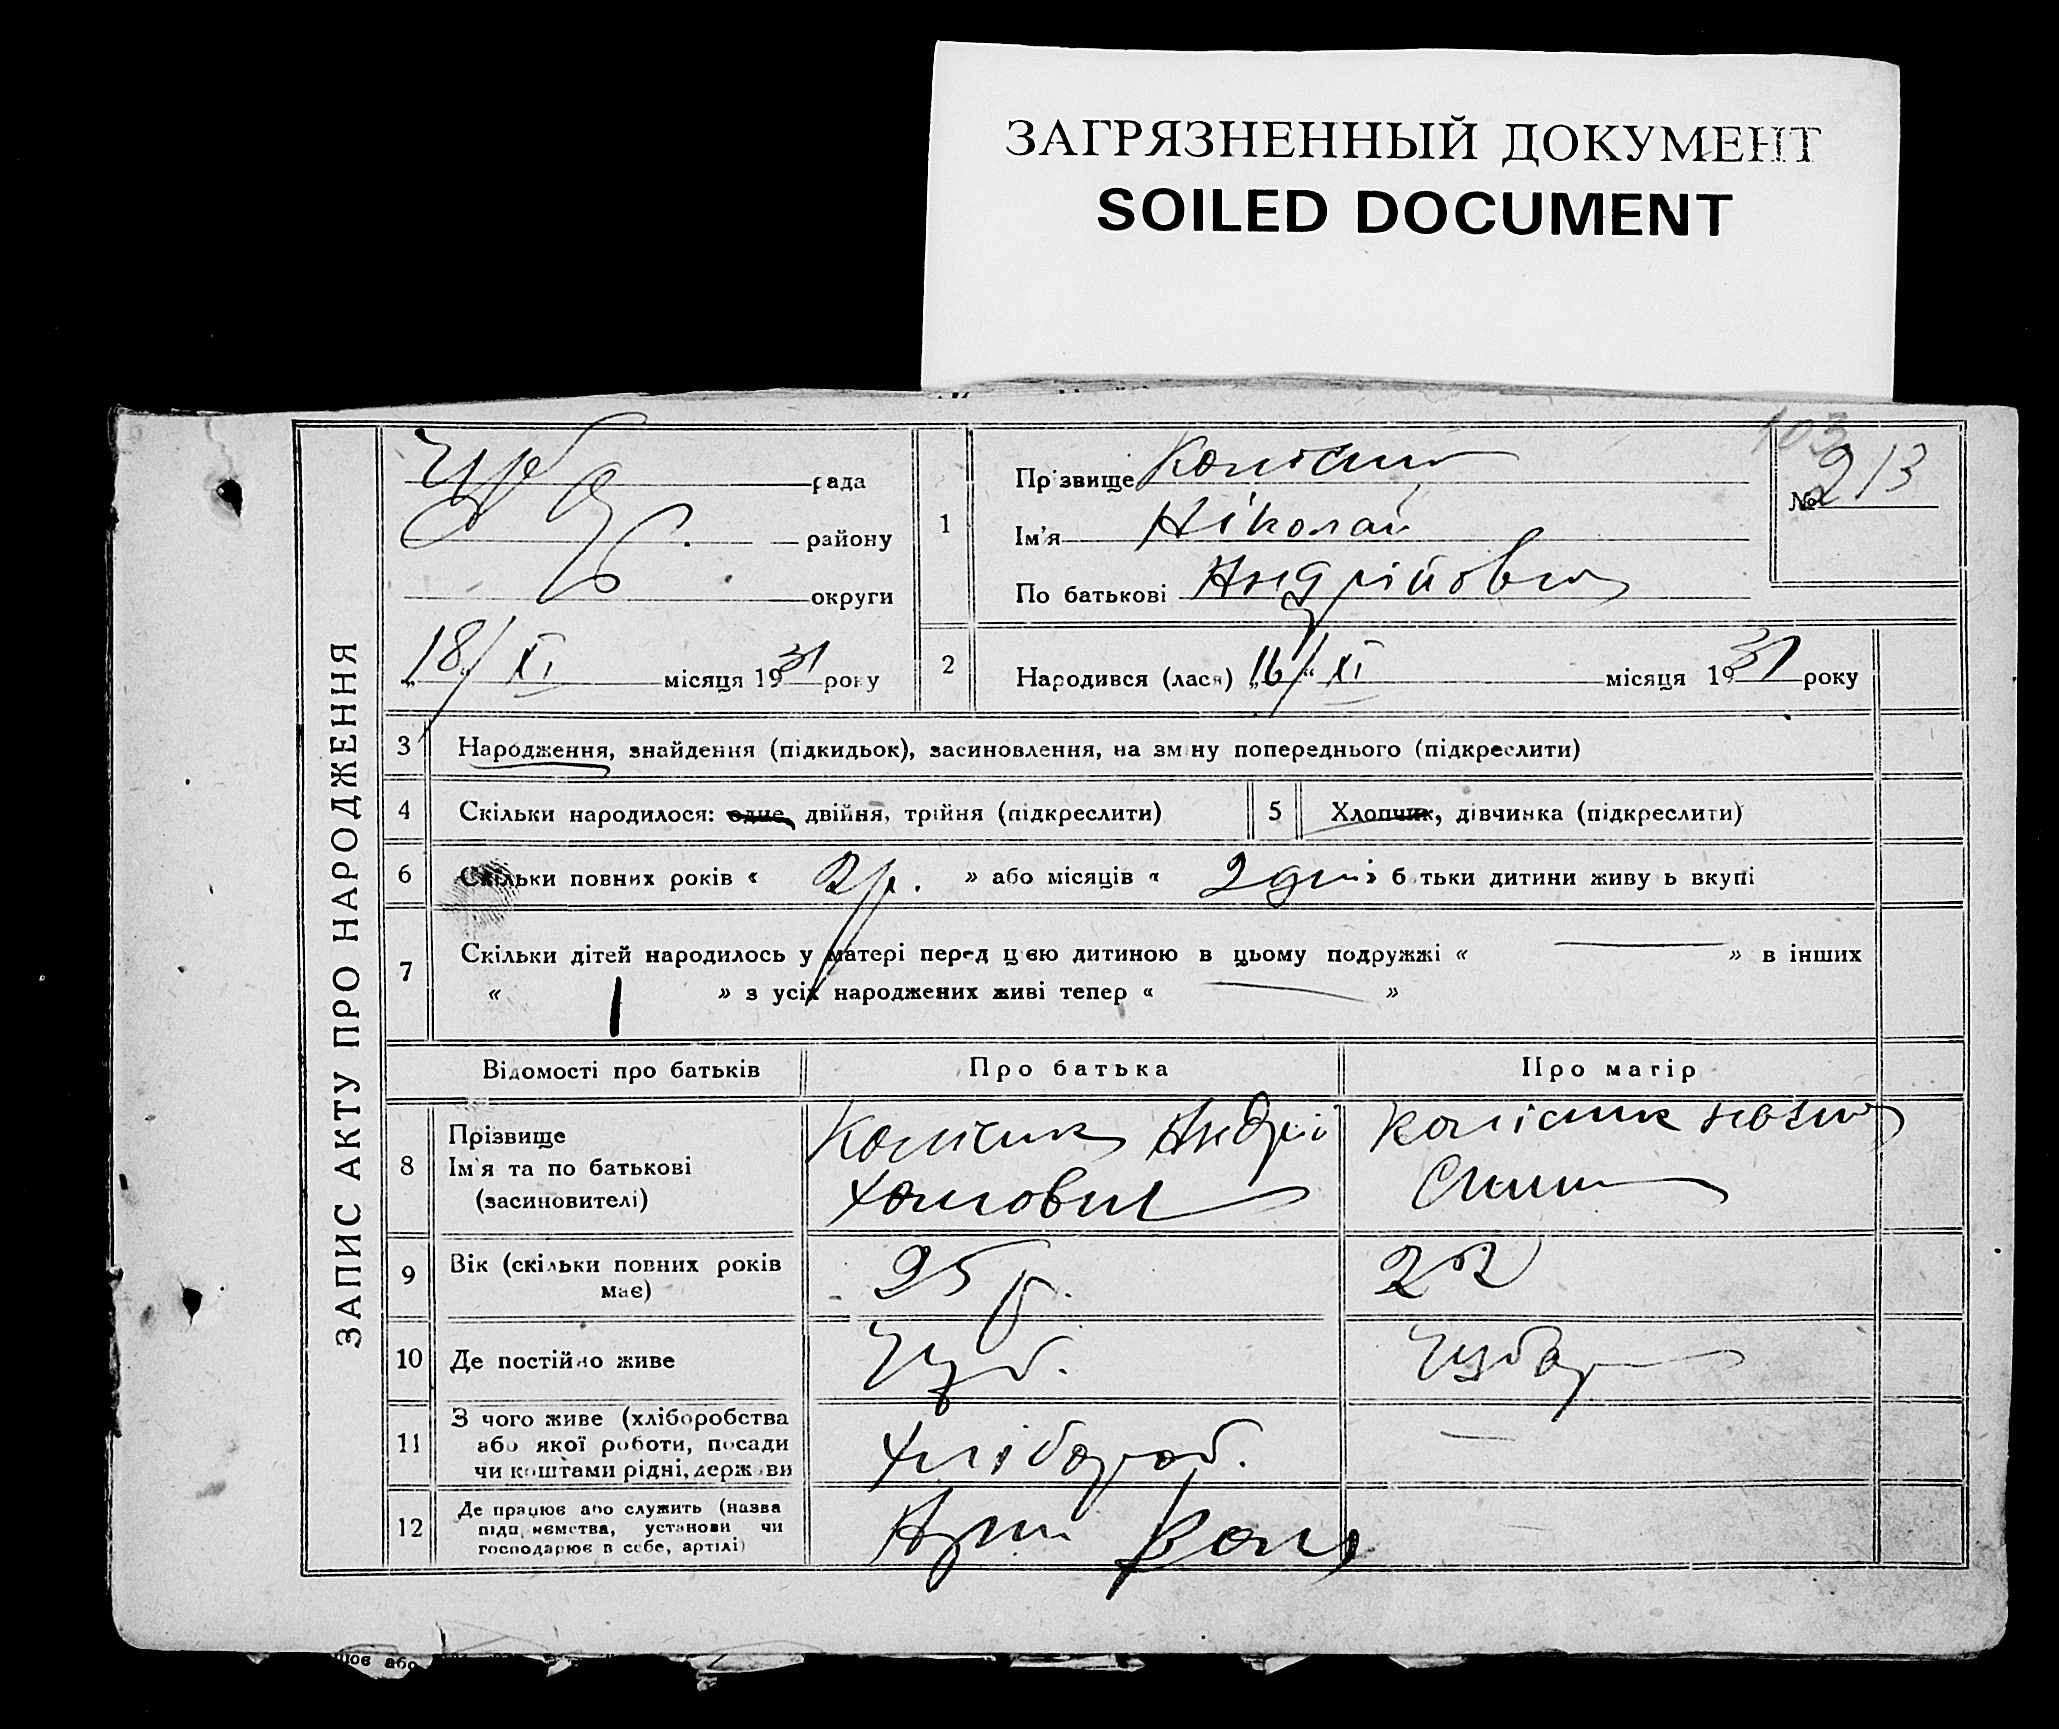 ЗАГРЯЗНЕННЫЙ ДОКУМЕНТ
SOILED DOCUMENT
ЗАПИС АКТУ ПРО НАРОДЖЕННЯ
рада
району
округи
„18“ XI місяця 1931 року
103
№ 213
1
Прізвище
Ім'я Ніколай
По батькові Андрійович
2
Народився (лася) „16“ XI місяця 1931 року
3 Народження, знайдення (підкидьок), засиновлення, на зміну попереднього (підкреслити)
4 Скільки народилося: одне, двійня, трійня (підкреслити)
5 Хлопчик, дівчинка (підкреслити)
6 Скільки повних років « 2 р. » або місяців « 2 дні » батьки дитини живуть вкупі
7 Скільки дітей народилось у матері перед цією дитиною в цьому подружжі « — » в інших
« 1 » з усіх народжених живі тепер « — »
Відомості про батьків Про батька Про матір
8 Прізвище
Ім'я та по батькові
(засиновителі)
Колісник Андрій
Хомович
Колісник
9 Вік (скільки повних років
має)
25 р.
22
10 Де постійно живе
11 З чого живе (хліборобства
або якої роботи, посади
чи коштами рідні, держави
Хлібороб.
—
12 Де працює або служить (назва
підприємства, установи чи
господарює в себе, артілі)